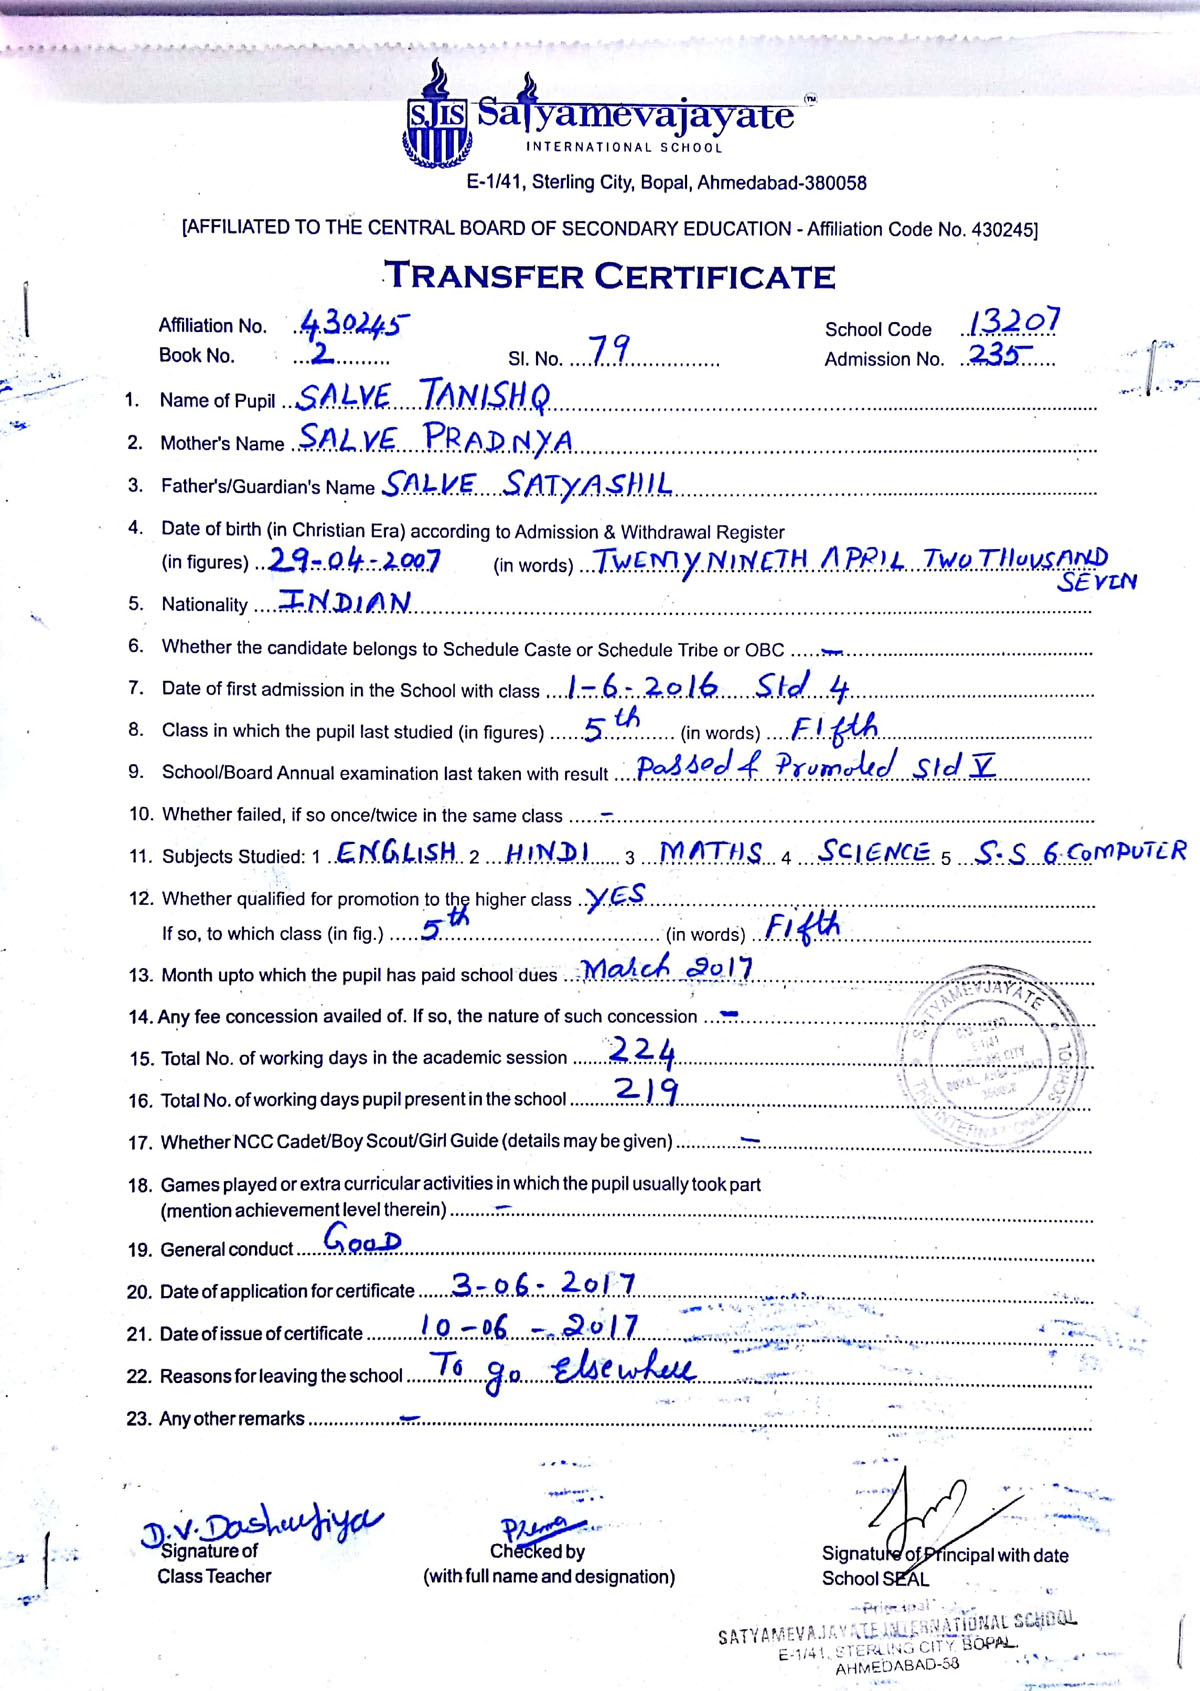 SJIS Satyamevajayate TM
INTERNATIONAL SCHOOL
E-1/41, Sterling City, Bopal, Ahmedabad-380058
[AFFILIATED TO THE CENTRAL BOARD OF SECONDARY EDUCATION - Affiliation Code No. 430245]
TRANSFER CERTIFICATE
Affiliation No. 430245 School Code 13207
Book No. 2 Sl. No. 79 Admission No. 235
1. Name of Pupil SALVE TANISHQ
2. Mother's Name SALVE PRADNYA
3. Father's/Guardian's Name SALVE SATYASHIL
4. Date of birth (in Christian Era) according to Admission & Withdrawal Register
(in figures) 29-04-2007 (in words) TWENTY NINETH APRIL TWO THOUSAND
SEVEN
5. Nationality INDIAN
6. Whether the candidate belongs to Schedule Caste or Schedule Tribe or OBC –
7. Date of first admission in the School with class 1-6-2016 Std 4
8. Class in which the pupil last studied (in figures) 5th (in words) Fifth
9. School/Board Annual examination last taken with result Passed & Prumoted Std V
10. Whether failed, if so once/twice in the same class –
11. Subjects Studied: 1 ENGLISH 2 HINDI 3 MATHS 4 SCIENCE 5 S.S 6.COMPUTER
12. Whether qualified for promotion to the higher class YES
If so, to which class (in fig.) 5th (in words) Fifth
13. Month upto which the pupil has paid school dues March 2017
14. Any fee concession availed of. If so, the nature of such concession –
15. Total No. of working days in the academic session 224
16. Total No. of working days pupil present in the school 219
17. Whether NCC Cadet/Boy Scout/Girl Guide (details may be given) –
18. Games played or extra curricular activities in which the pupil usually took part
(mention achievement level therein) –
19. General conduct GOOD
20. Date of application for certificate 3-06-2017
21. Date of issue of certificate 10-06-2017
22. Reasons for leaving the school To go Elsewhere
23. Any other remarks –
SATYAMEVJAYATE
INTERNATIONAL SCHOOL
D.V. Prema
Signature of Checked by Signature of Principal with date
Class Teacher (with full name and designation) School SEAL
Principal
SATYAMEVAJAYATE INTERNATIONAL SCHOOL
E-1/41, STERLING CITY, BOPAL,
AHMEDABAD-58